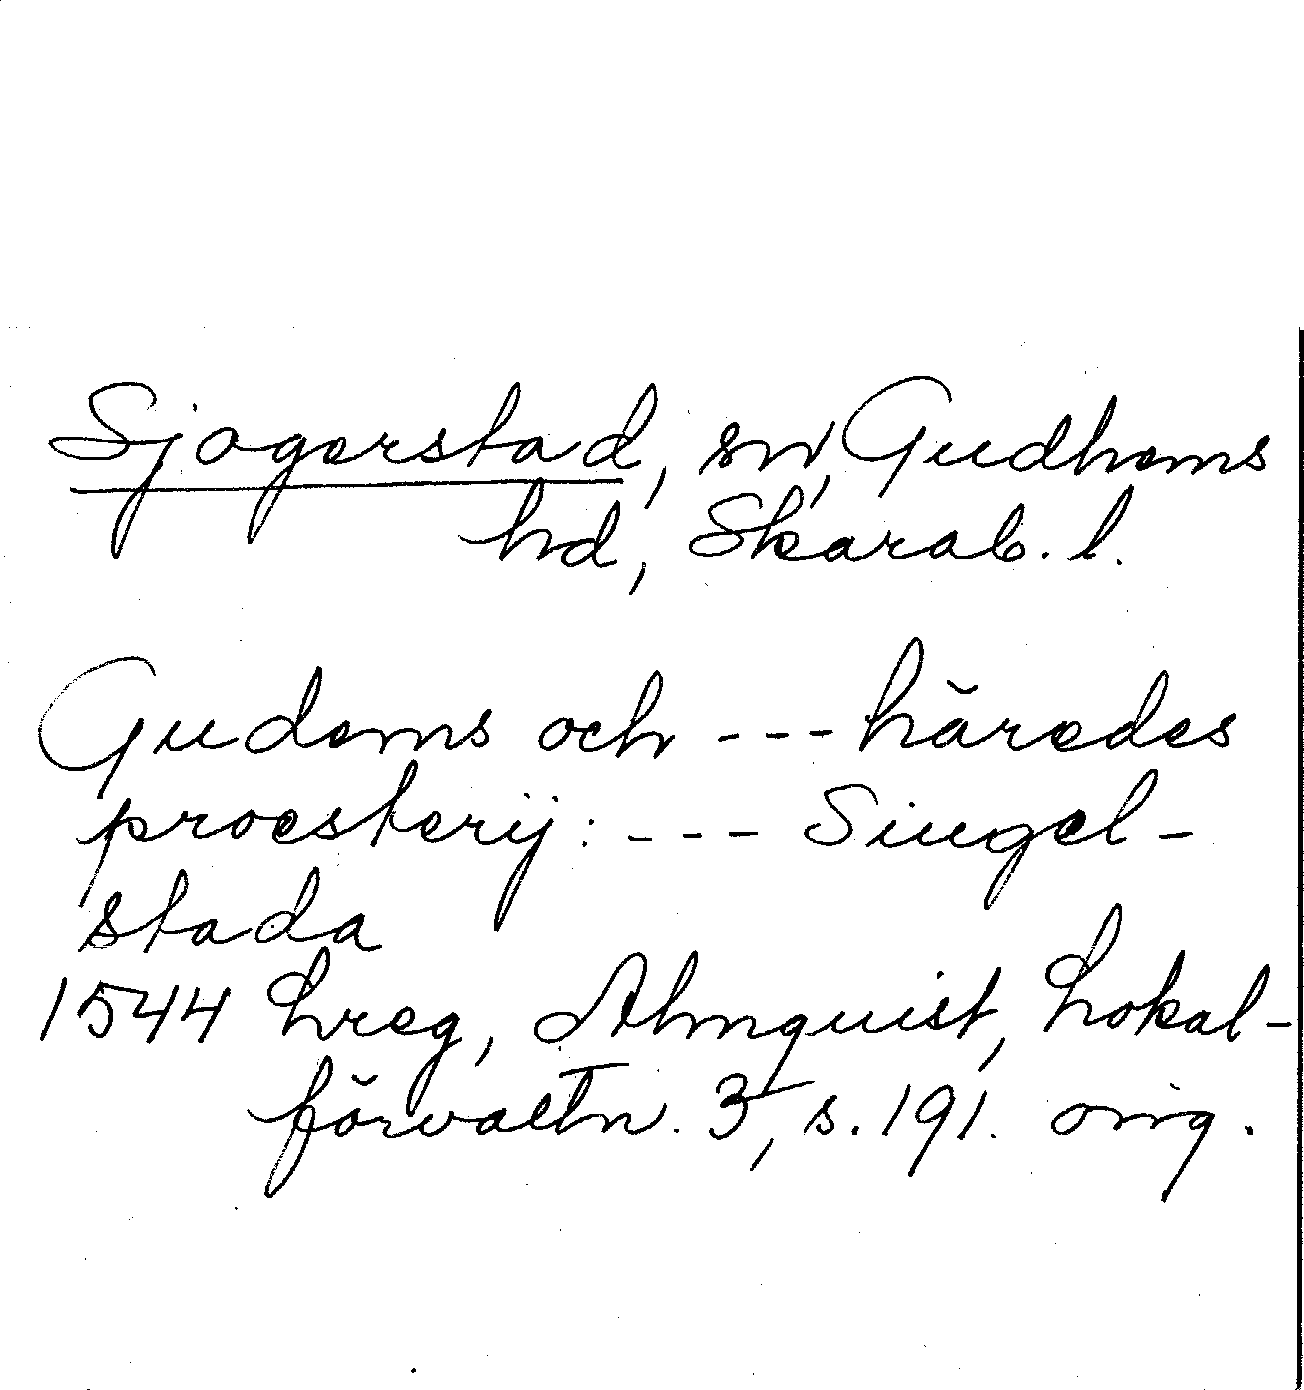 Sjogerstad, sn, Gudhems
hd, Skarab. l.
Gudems och --- häredes
proesterij: --- Siugel-
stada
1544 Lreg, Almquist, Lokal-
förvaltn. 3, s. 191. orig.